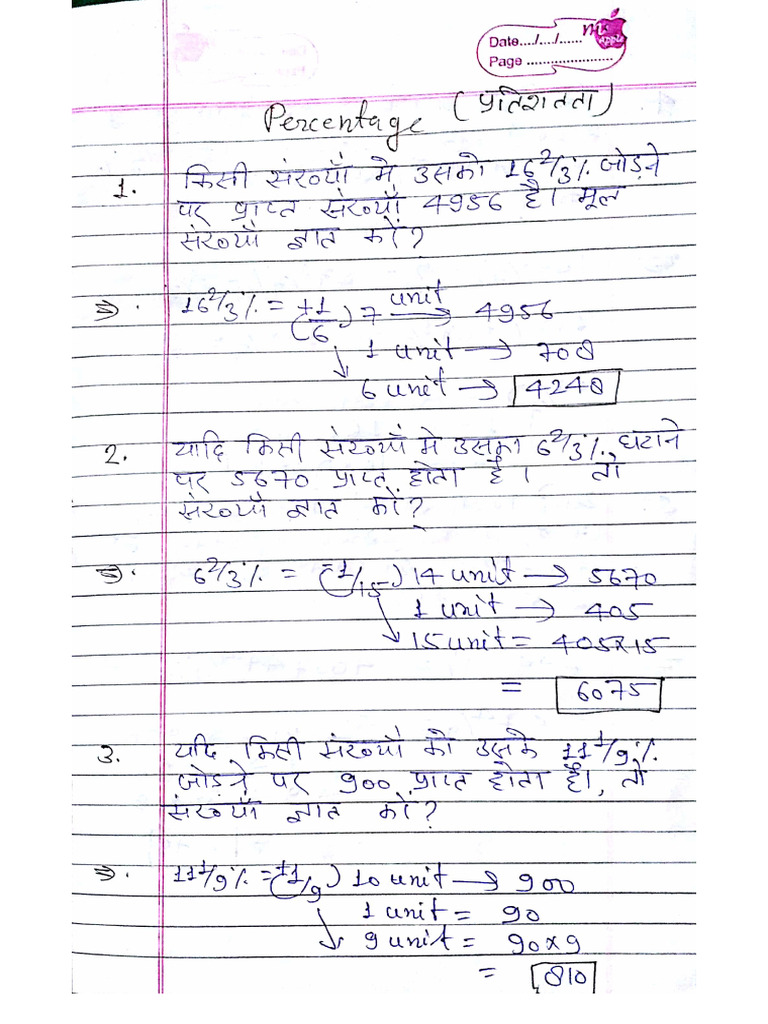 Date..../..../......
Page .......................
Percentage (प्रतिशतता)
1. किसी संख्याँ मे उसको 16 2/3 % जोड़ने
पर प्राप्त संख्याँ 4956 है। मूल
संख्याँ ज्ञात करें?
⇒. 16 2/3 % = (+1/6) 7 unit → 4956
1 unit → 708
6 unit → 4248
2. यादि किसी संख्याँ मे उसका 6 2/3 % घटाने
पर 5670 प्राप्त होता है। तो
संख्याँ ज्ञात करें?
⇒. 6 2/3 % = (-1/15) 14 unit → 5670
1 unit → 405
15 unit = 405×15
= 6075
3. यदि किसी संख्याँ को उसके 11 1/9 %
जोड़ने पर 900 प्राप्त होता है। तो
संख्याँ ज्ञात करें?
⇒. 11 1/9 % = (+1/9) 10 unit → 900
1 unit = 90
9 unit = 90×9
= 810